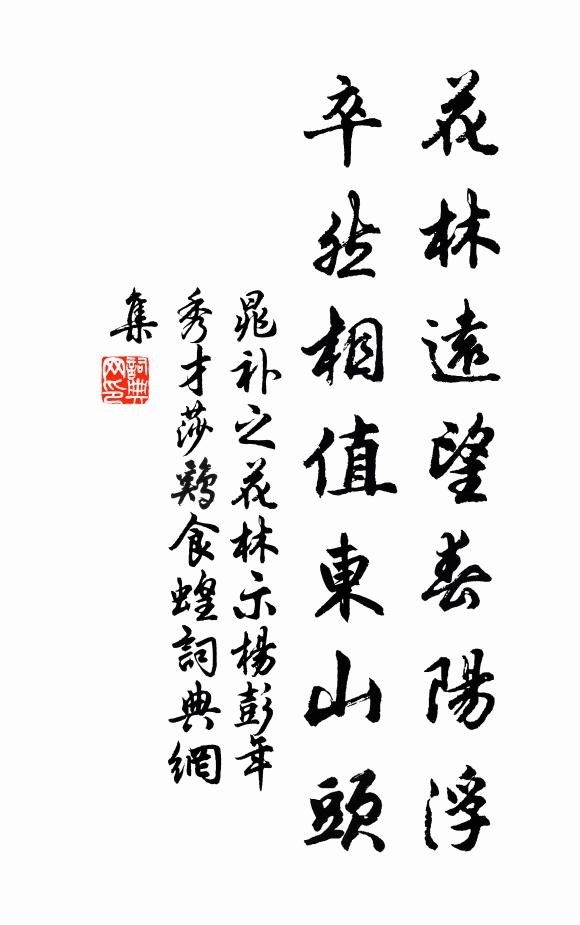 花林遠望春陽浮
卒然相值東山頭
晁补之花林示楊彭年
秀才莎鶏食蝗詞典網
集
詞典
网印